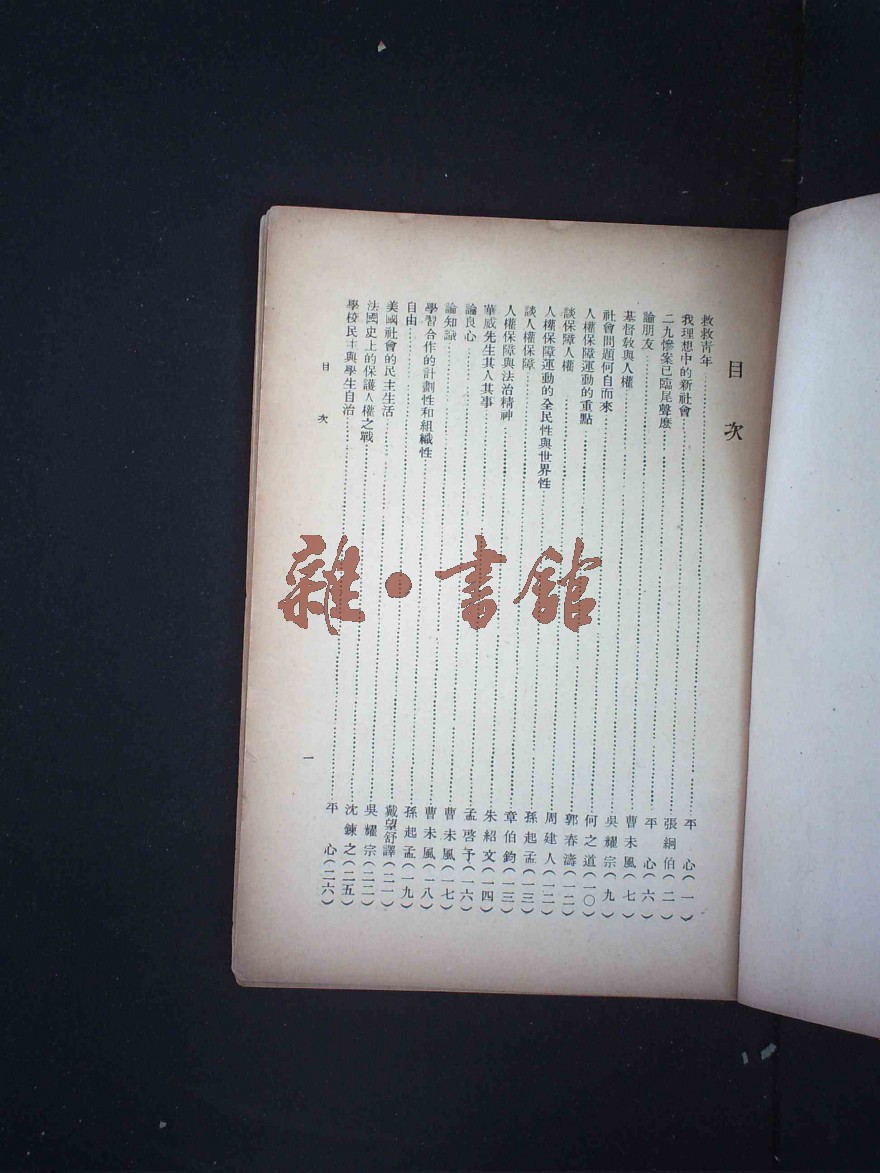 目次
救救青年 平心(一)
我理想中的新社會 張絅伯(二)
二九慘案已臨尾聲麽 平心(六)
論朋友 曹未風(七)
基督敎與人權 吳耀宗(九)
社會問題何自而來 何之道(一〇)
人權保障運動的重點 郭春濤(一二)
談保障人權 周建人(一二)
人權保障運動的全民性與世界性 孫起孟(一三)
談人權保障 章伯鈞(一三)
人權保障與法治精神 朱紹文(一四)
華威先生其人其事 孟啓予(一六)
論良心 曹未風(一七)
論知識 曹未風(一八)
學習合作的計劃性和組織性 孫起孟(一九)
自由 戴望舒譯(二一)
美國社會的民主生活 吳耀宗(二二)
法國史上的保護人權之戰 沈鍊之(二五)
學校民主與學生自治 平心(二六)
目次
一
雜·書館